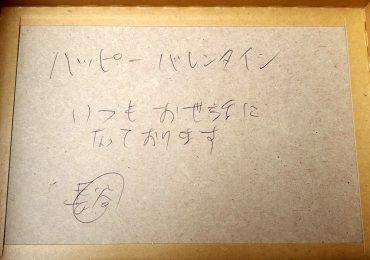 ハッピー バレンタイン
いつも お世話に
なっております